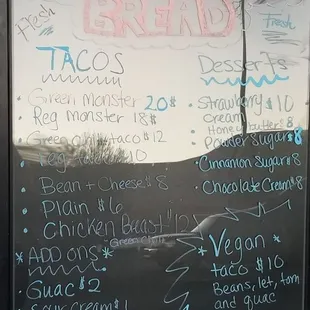 Fresh
BREAD
Fresh
TACOS
· Green Monster 20$
Reg Monster 18$
· Green Chili taco $12
10
· Bean + Cheese $8
· Plain $6
· Chicken Breast $12
Green Chili
* ADD ONS *
· Guac $2
Sour Cream $1
Desserts
· Strawberry $10
Cream
Honey butter $8
· Powder Sugar $8
· Cinnamon Sugar $8
· Chocolate Cream $8
* Vegan *
taco $10
Beans, let, tom
and guac